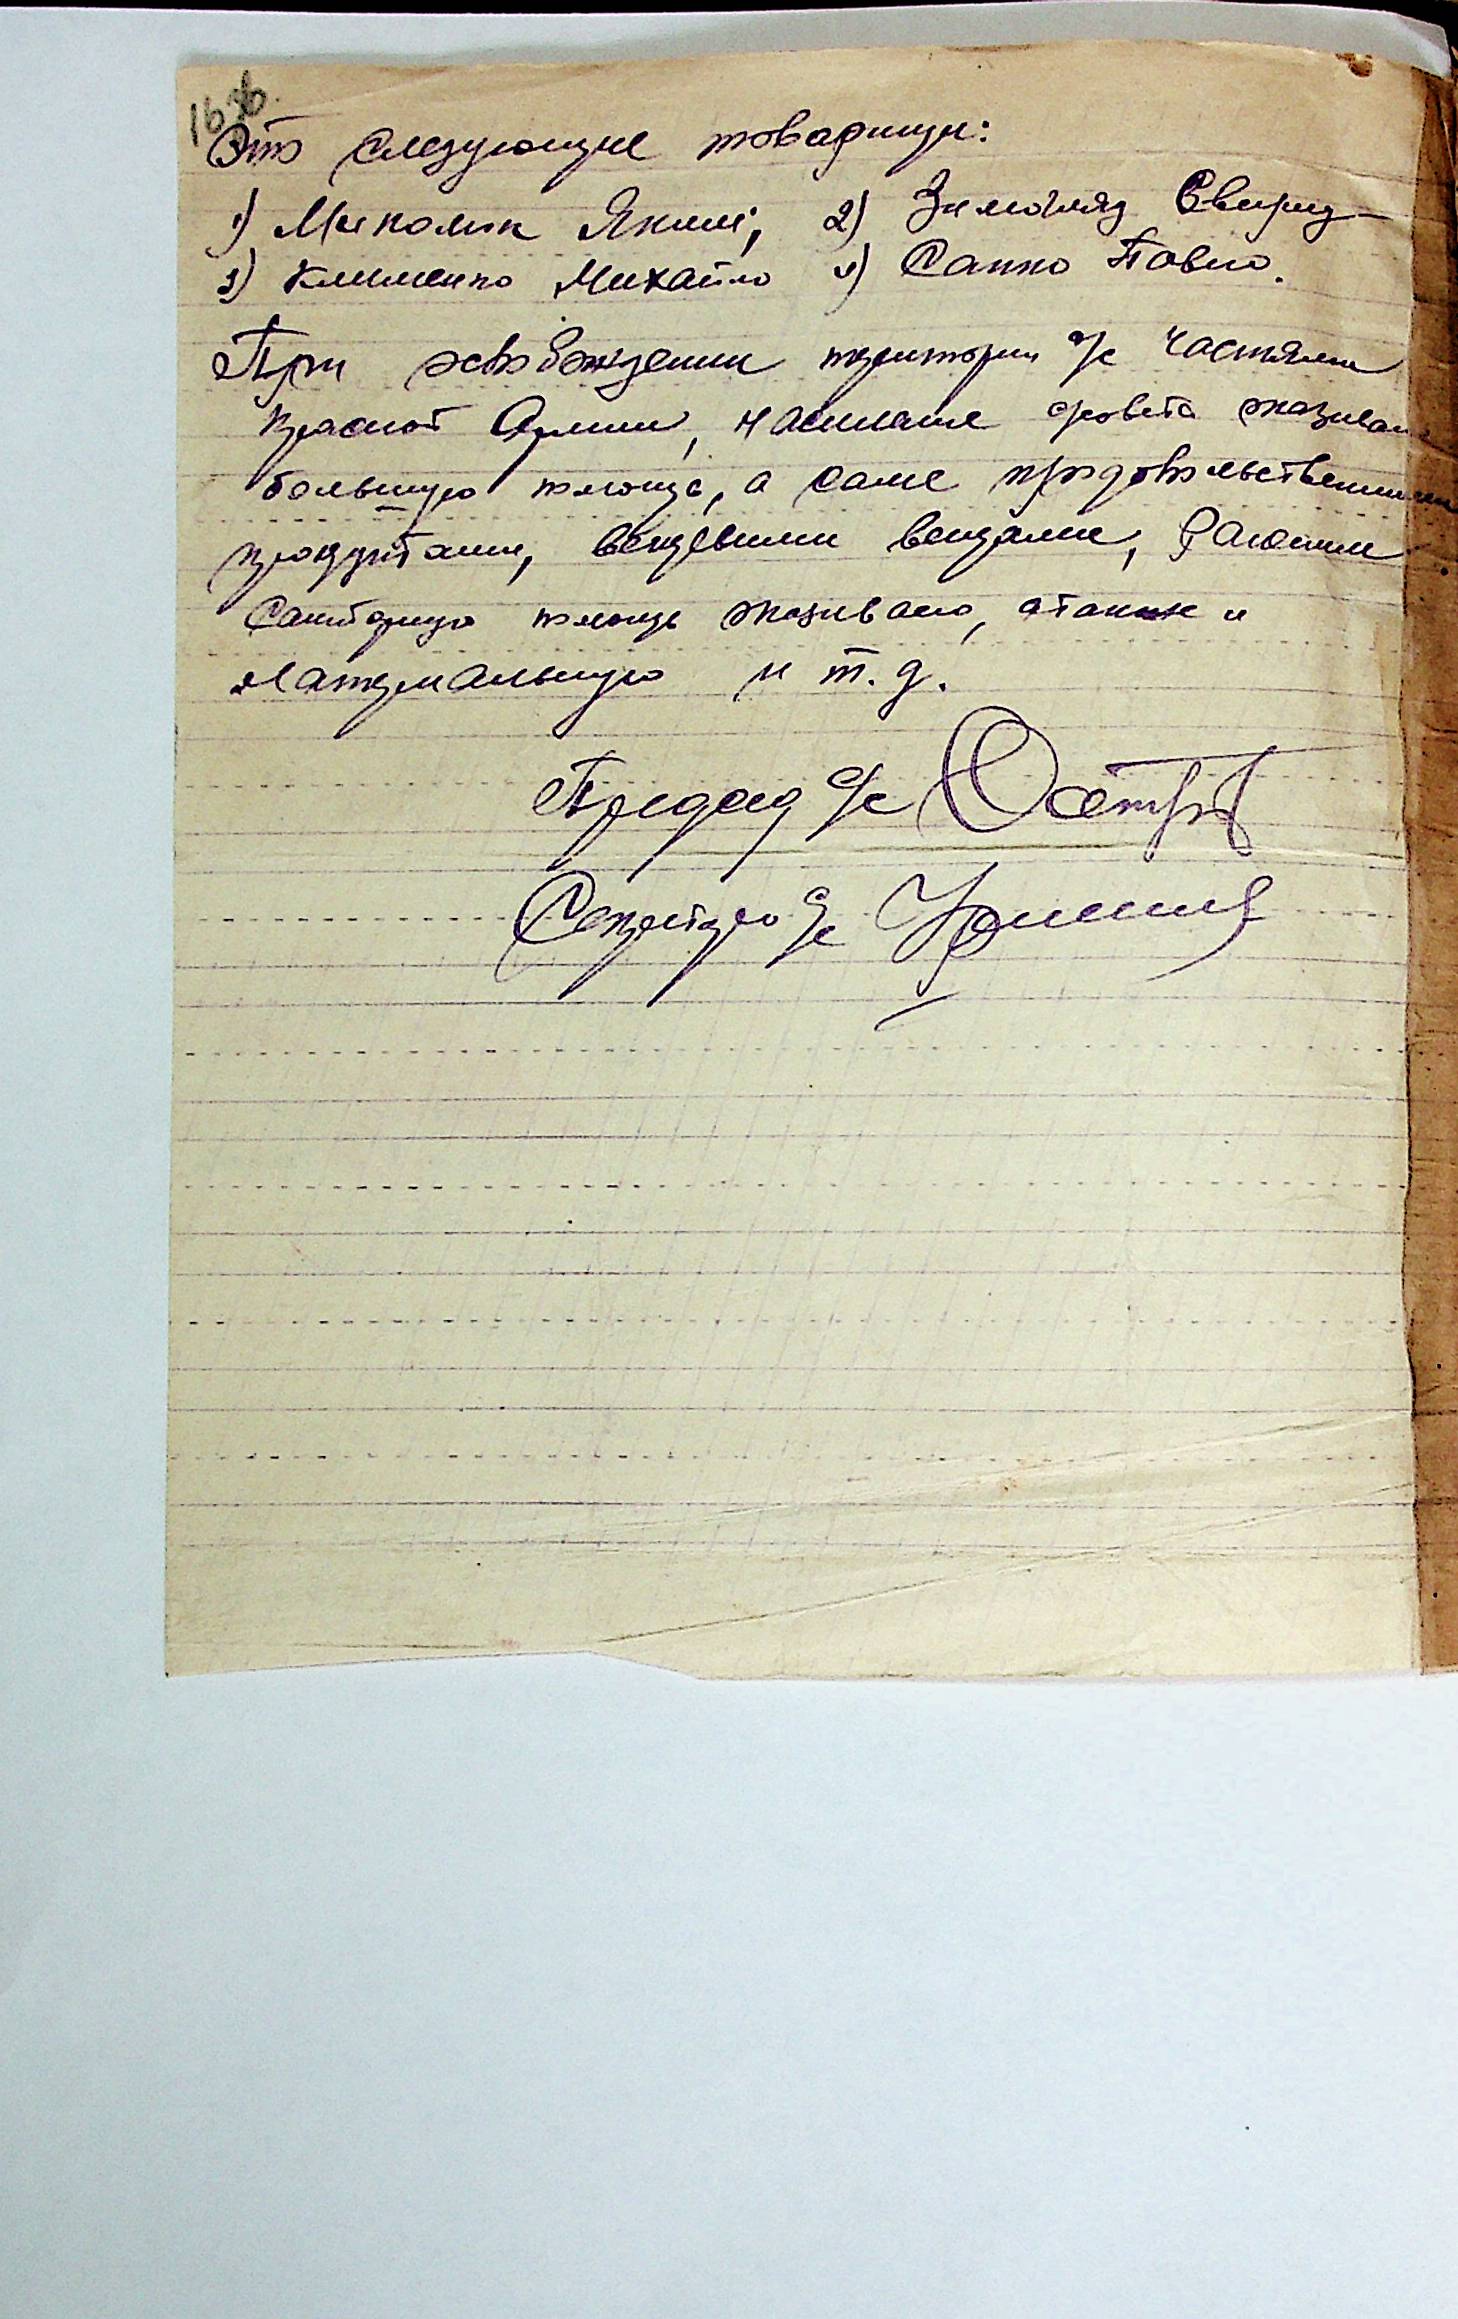 Это следующие товарищи:
1) Миколюк Яким; 2) Свирид
3) Клименко Михайло 4) Сапко Павло.
При освобождении територии с/с частями
красной Армии, население с/совета оказивало
большую помощь, а саме продовольственними
продуктами, вещевими вещами, Раненим
Санитарную помощь оказивало, атакже и
Материальную и т. д.
Председ с/с
Секретарь с/с